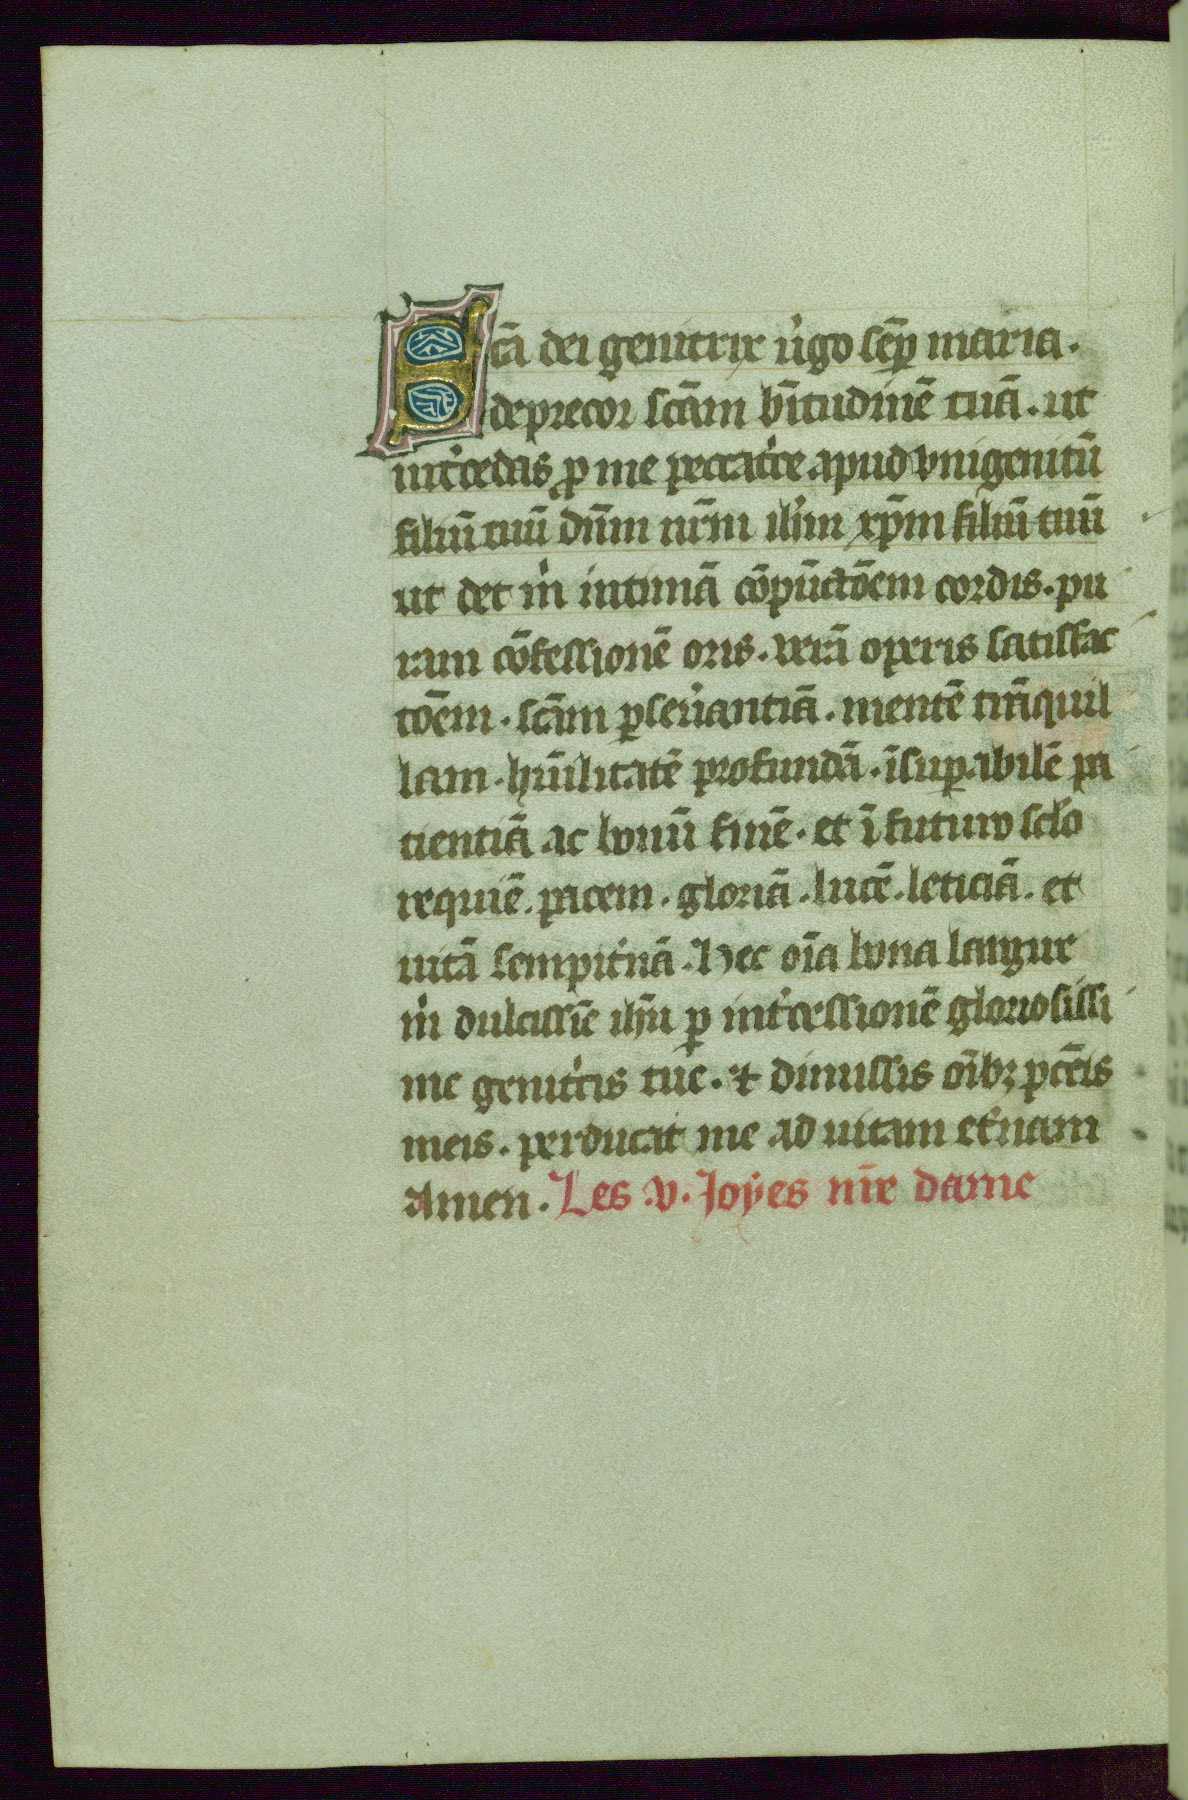 Scā dei genitrix u̍go sēp maria.
deprecor scām bītudinē tuā. ut
int̍cedas ꝓ me peccatr̍ce apud vnigenitū
filiū tuū dn̄m nr̄m ih̄m xp̄m filiū tuū
ut det m̍ intimā cōpūctōem cordis. pu
ram cōfessionē oris. uerā operis satisfac
tōem. scām ꝑseu̍antiā. mentē trāquil
lam. hūilitatē profundā. īsuꝑabilē pa
tientiā ac bonū finē. et ī futuro scl̄o
requiē. pacem. gloriā. lucē. leticiā. et
uitā sempit̍nā. Hec oīa bona largire
m̍ dulcissīe ih̄u ꝑ int̍cessionē gloriosissi
me genitr̍cis tue. ⁊ dimissis oībꝫ pc̄cīs
meis. perducat me ad uitam et̍nam
Amen. Les .v. Joÿes nr̄e dame